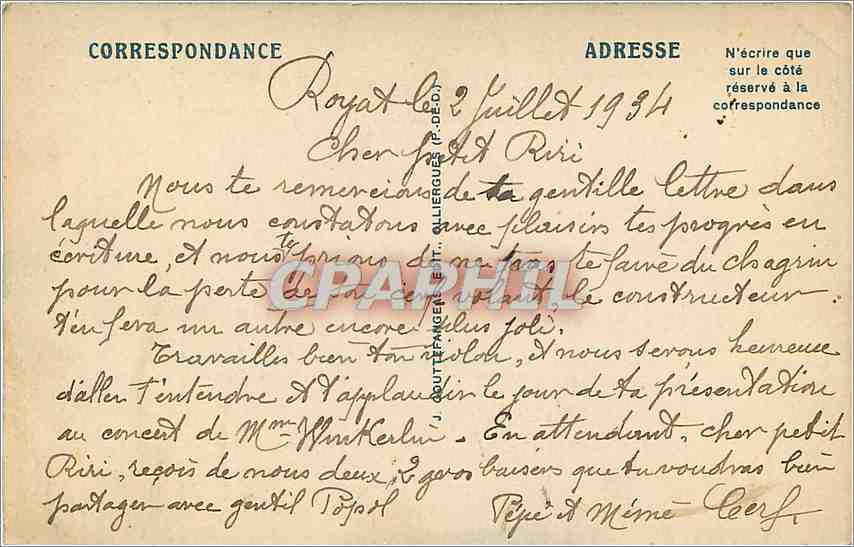 CORRESPONDANCE
ADRESSE
N'écrire que
sur le côté
réservé à la
correspondance
Royat le 2 Juillet 1934
Cher petit Riri
Nous te remercions de ta gentille lettre dans
laquelle nous constatons avec plaisirs tes progrès en
écriture, et nous te prions de ne pas te faire du chagrin
pour la perte de ton cerf volant, le constructeur
t'en fera un autre encore plus joli.
Travailles bien ton violon, et nous serons heureuse
d'aller t'entendre et t'applaudir le jour de ta présentation
au concert de Mme Winkerlin. En attendant, cher petit
Riri, reçois de nous deux, 2 gros baisers que tu voudras bien
partager avec gentil Popol
Pépé et Mémé Cerf
J. GOUTTEFANGEAS, EDIT., OLLIERGUES (P.-DE-D.)
CPAPHIL